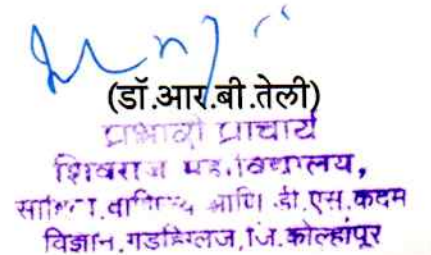 (डॉ.आर.बी.तेली)
प्रभारी प्राचार्य
शिवराज महाविद्यालय,
आणि डी.एस.कदम
विज्ञान,गडहिंग्लज,जि.कोल्हापूर